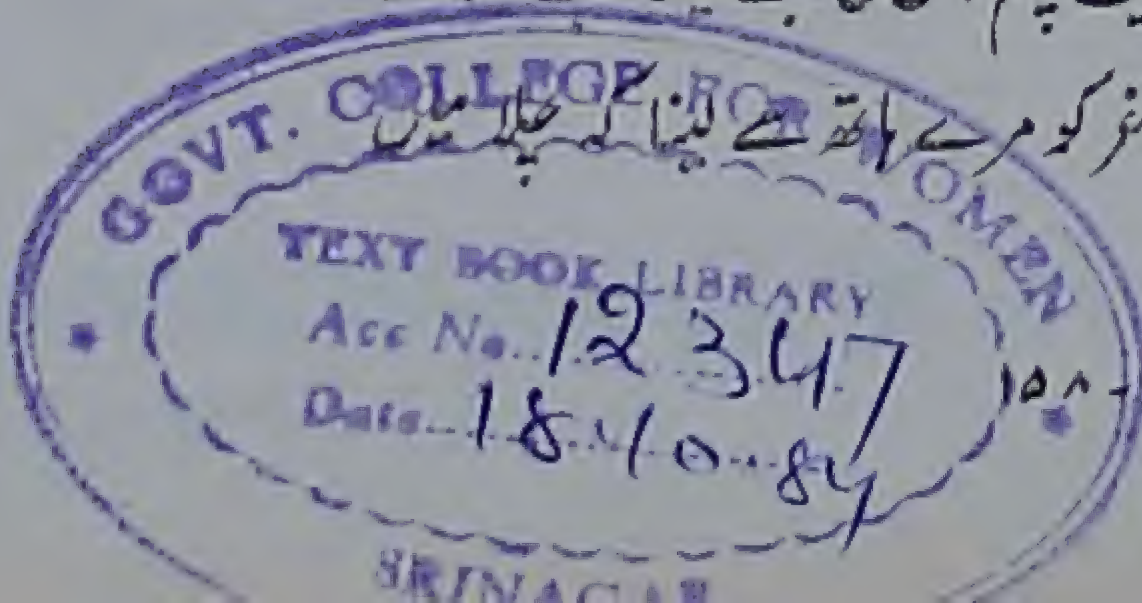 کو مرے ہاتھ سے لینا کہ چلا میں
GOVT. COLLEGE FOR WOMEN
TEXT BOOK LIBRARY
Acc No.. 12347
Date.. 18/10.84
۱۵۸-
SRINAGAR